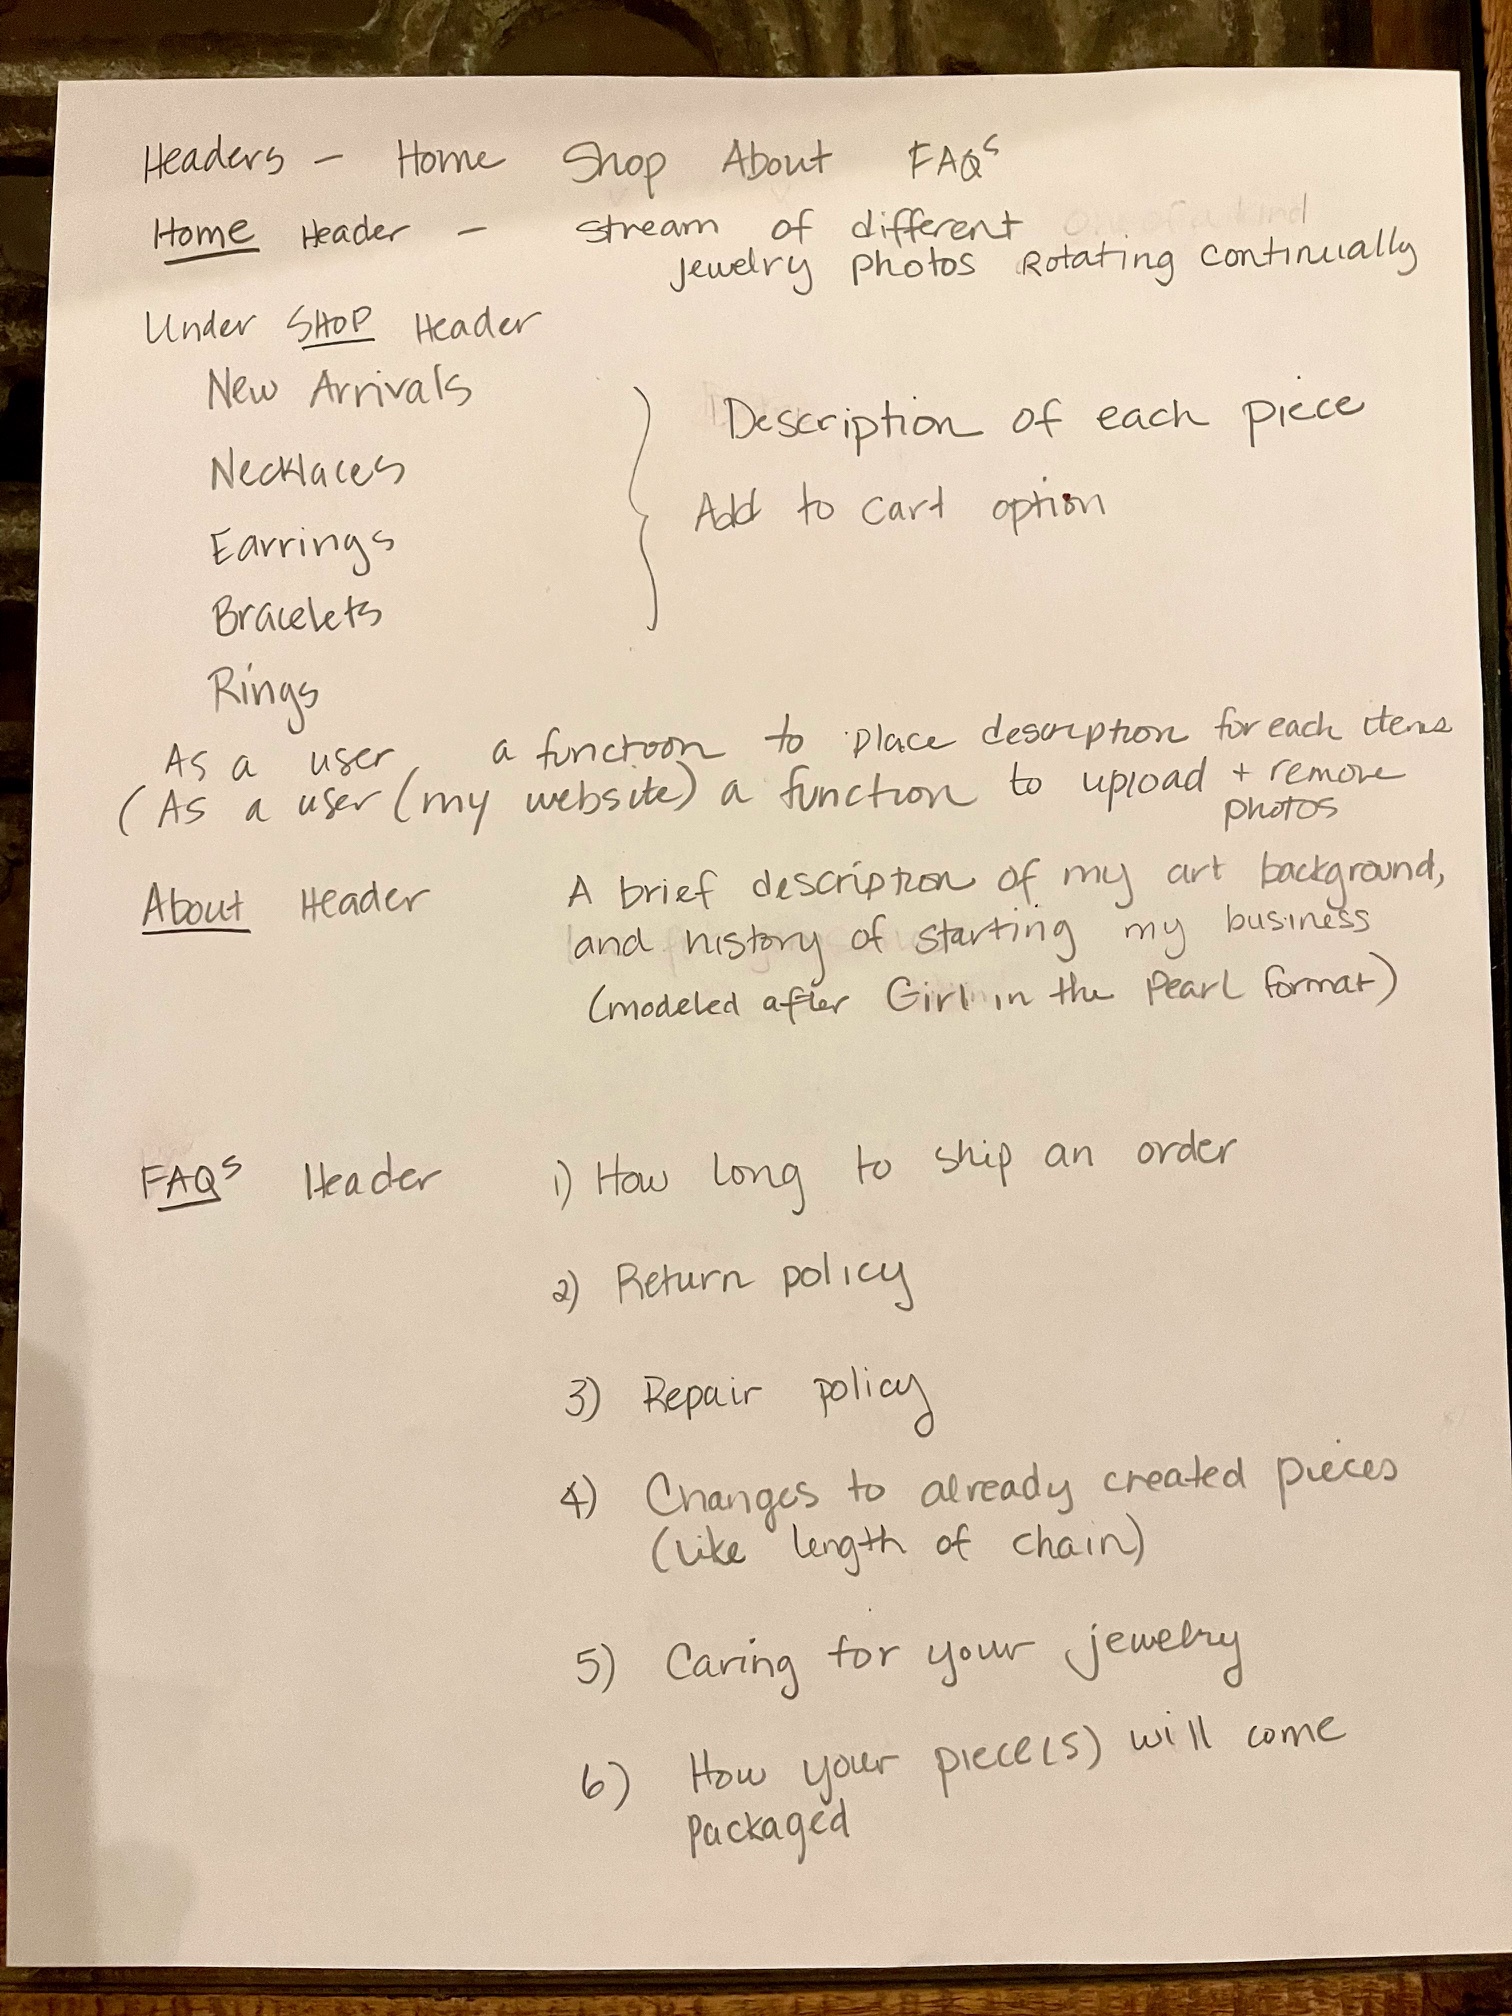 Headers - Home Shop About FAQs
Home Header - stream of different
jewelry photos Rotating continually
Under SHOP Header
New Arrivals
Necklaces
Earrings
Bracelets
Rings
Description of each piece
Add to cart option
As a user a function to place description for each items
(As a user (my website) a function to upload + remove
photos
About Header A brief description of my art background,
and history of starting my business
(modeled after Girl in the Pearl format)
FAQs Header 1) How long to ship an order
2) Return policy
3) Repair policy
4) Changes to already created pieces
(like length of chain)
5) Caring for your jewelry
6) How your piece(s) will come
packaged